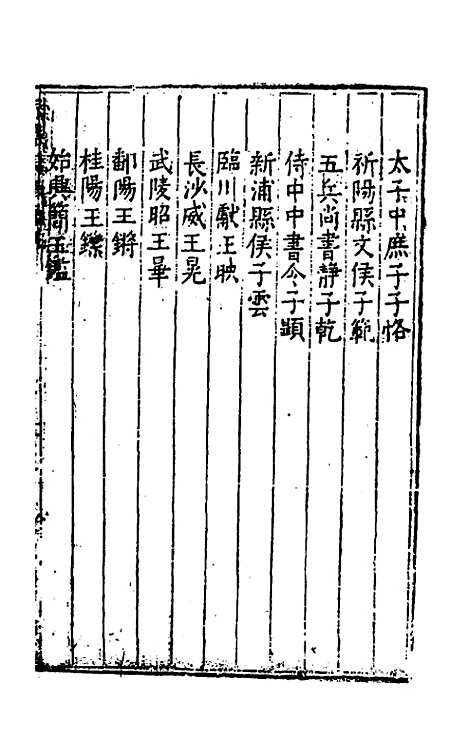 太子中庶子子恪
祈陽縣文侯子範
五兵尚書靜子乾
侍中中書令子顯
新浦縣侯子雲
臨川獻王映
長沙威王晃
武陵昭王曅
鄱陽王鏘
桂陽王鑠
始興簡王鑑